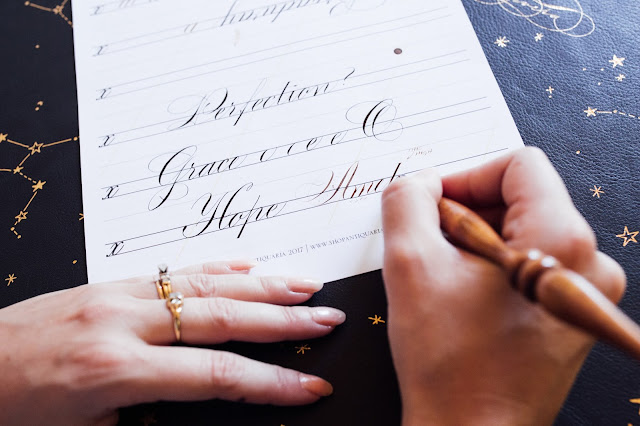 x
x
x Perfection?
x Grace c c e e C
x Hope And
TIQUARIA 2017 | WWW.SHOPANTIQUARIA